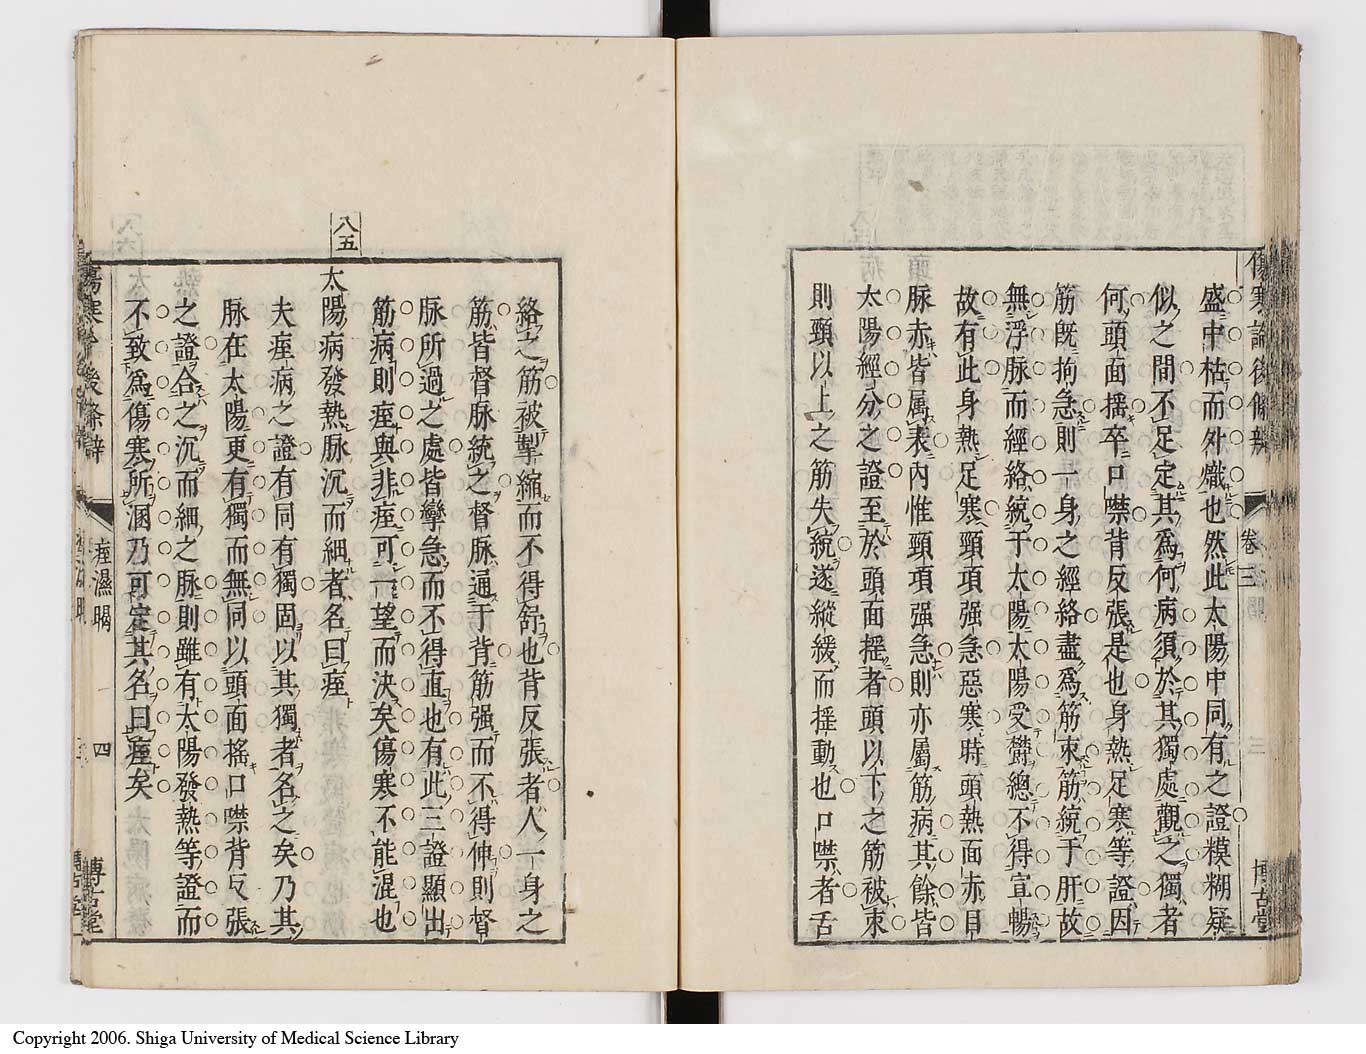 傷寒論後條辨
卷三
三
博古堂
盛中枯而外熾也然此太陽中同有之證糢糊疑
似之間不足定其為何病須於其獨處觀之獨者
何頭面搖卒口噤背反張是也身熱足寒等證因
筋既拘急則一身之經絡盡為筋束筋統于肝故
無浮脉而經絡統于太陽太陽受欝總不得宣暢
故有此身熱足寒頸項强急惡寒時頭熱面赤目
脉赤皆属表內惟頸項强急則亦屬筋病其餘皆
太陽經分之證至於頭面搖者頭以下之筋被束
則頸以上之筋失統遂縱緩而搖動也口噤者舌
絡之筋被掣縮而不得舒也背反張者人一身之
筋皆督脉統之督脉逼于背筋强而不得伸則督
脉所過之處皆攣急而不得直也有此三證顯出
筋病則痓與非痓可一望而決矣傷寒不能混也
八五
太陽病發熱脉沉而細者名曰痓
夫痓病之證有同有獨固以其獨者名之矣乃其
脉在太陽更有獨而無同以頭面搖口噤背反張
之證合之沉而細之脉則雖有太陽發熱等證而
不致為傷寒所溷乃可定其名曰痓矣
痓濕暍
四
博古堂
Copyright 2006. Shiga University of Medical Science Library